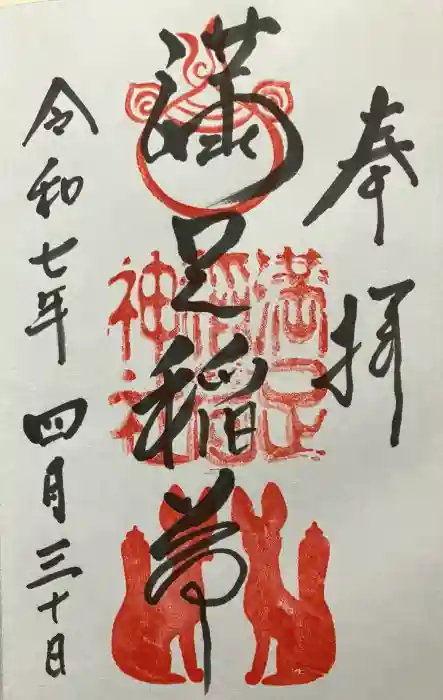 奉拝
満足稲荷
満足
稲荷
神社
令和七年四月三十日